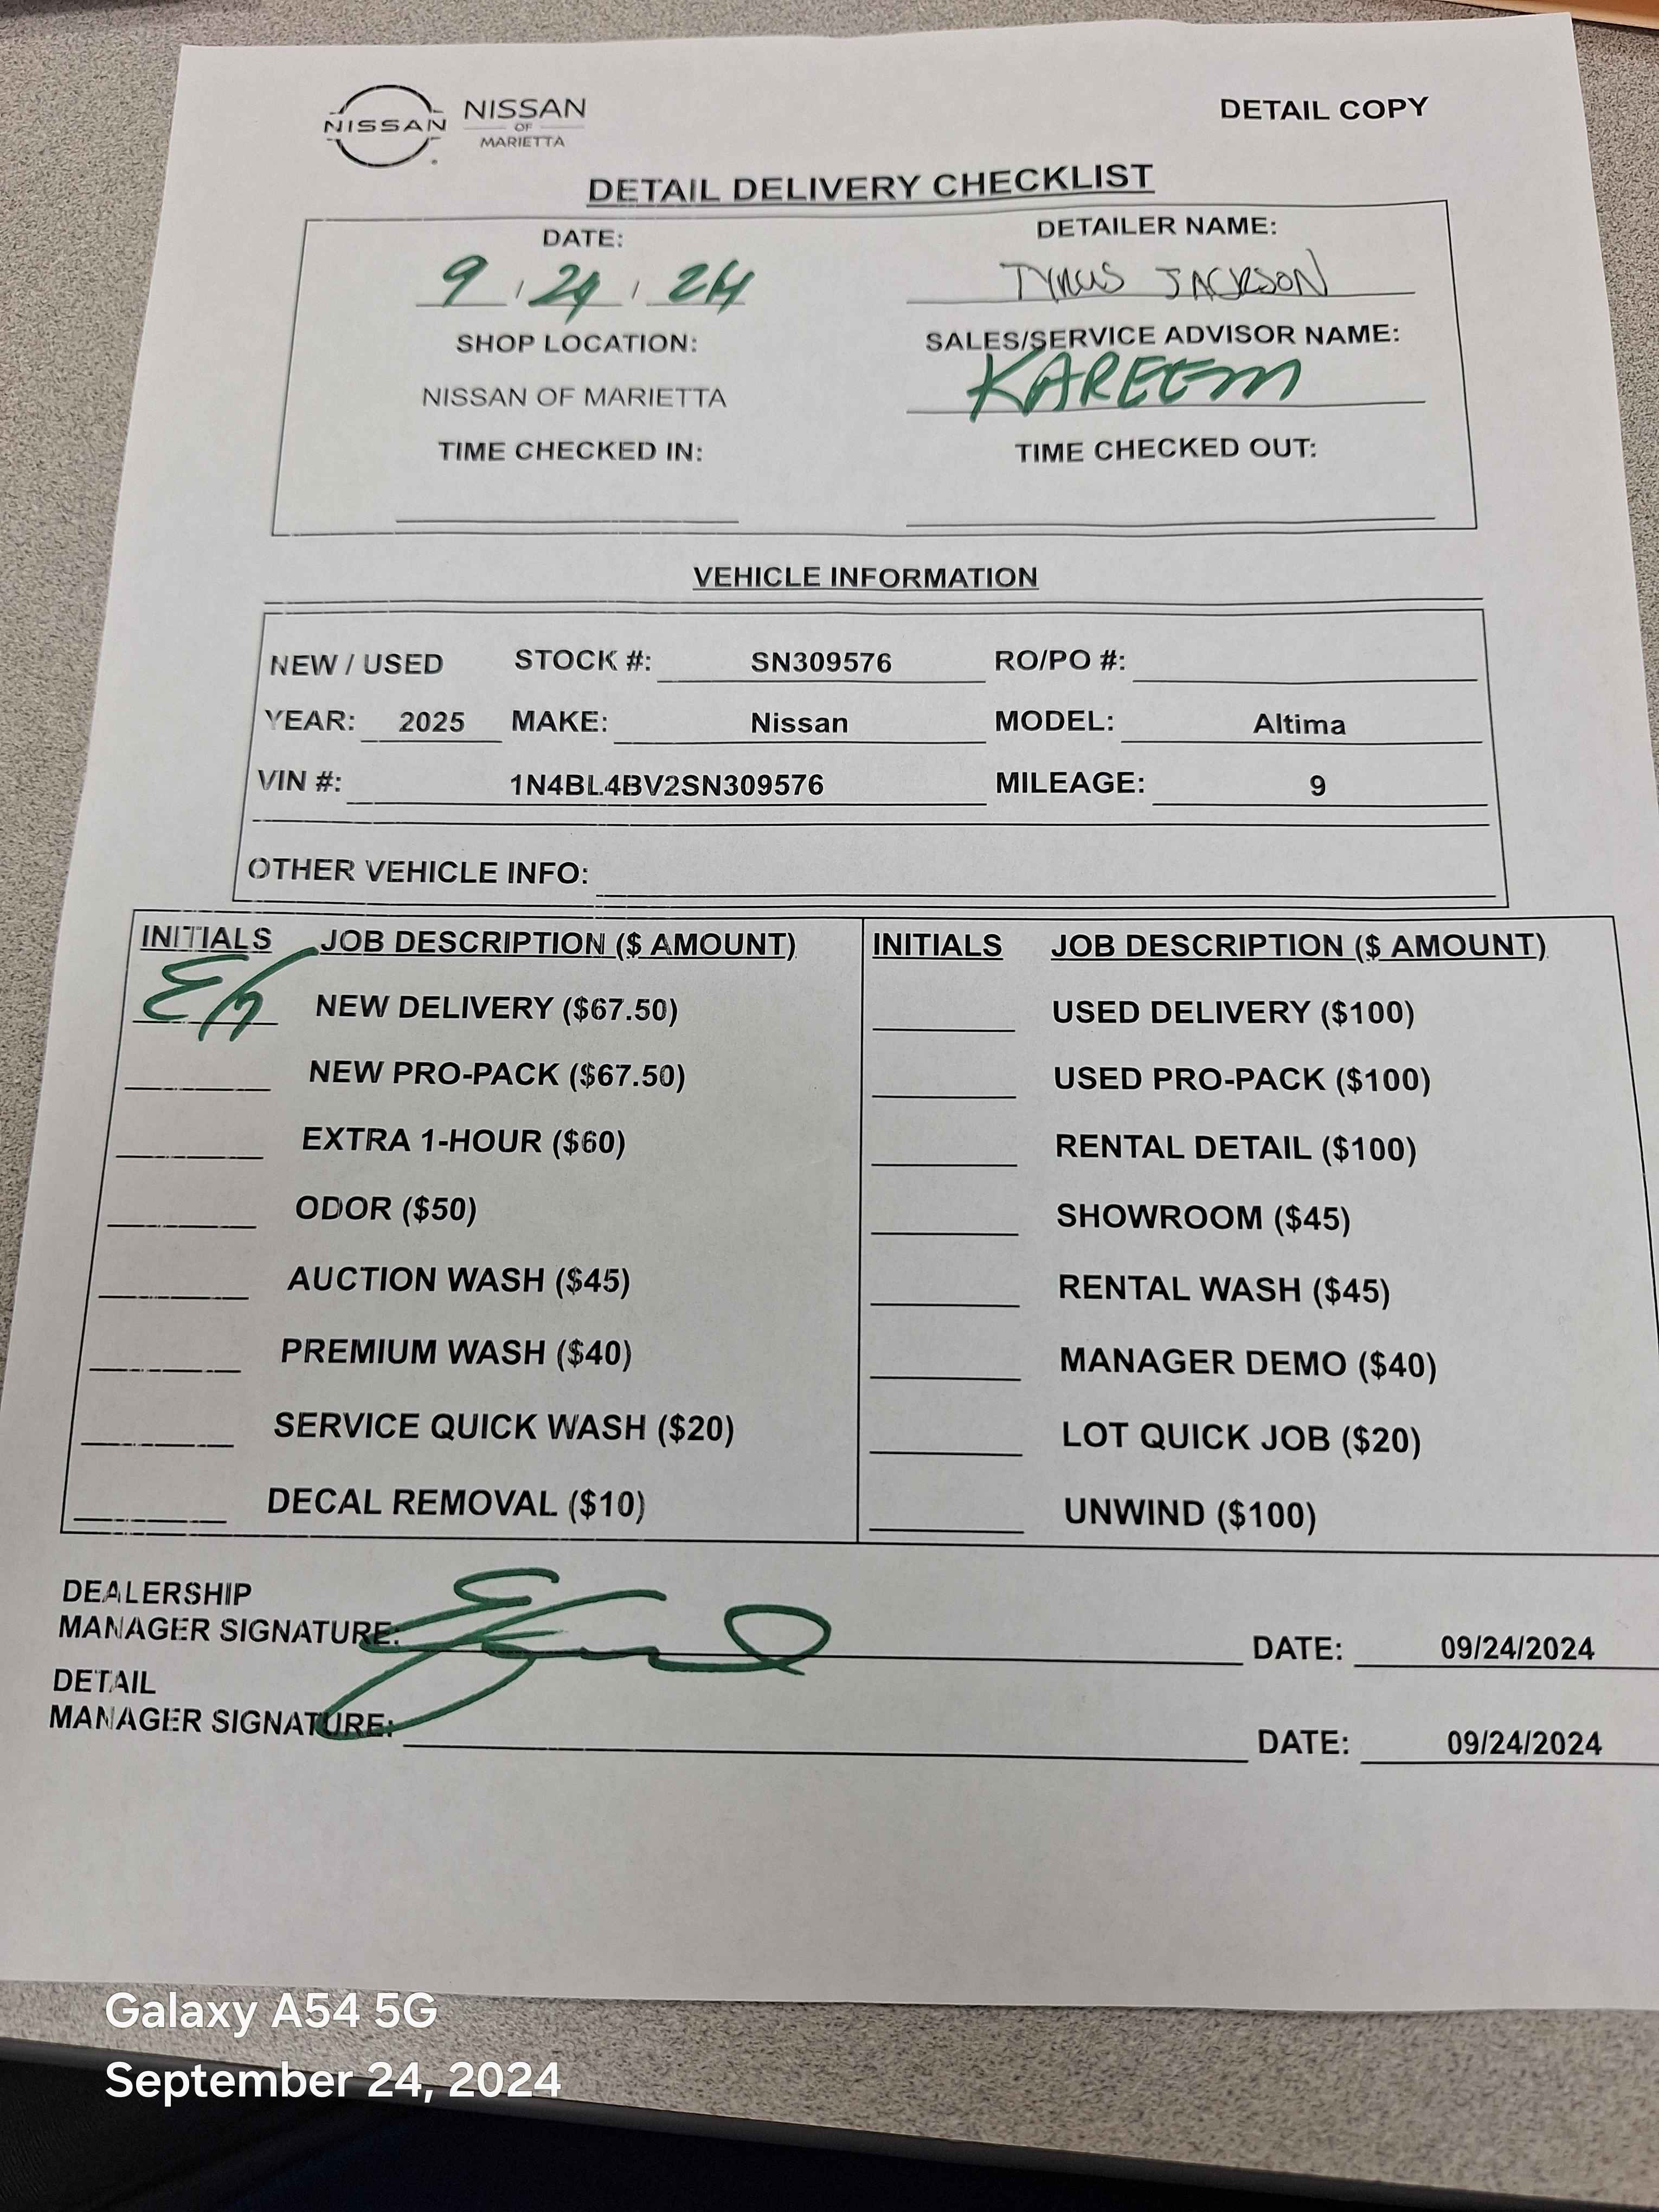 NISSAN NISSAN OF MARIETTA
DETAIL COPY
DETAIL DELIVERY CHECKLIST
DATE: DETAILER NAME:
9 / 24 / 24 TYRUS JACKSON
SHOP LOCATION: SALES/SERVICE ADVISOR NAME:
NISSAN OF MARIETTA KAREEM
TIME CHECKED IN: TIME CHECKED OUT:
VEHICLE INFORMATION
NEW / USED STOCK #: SN309576 RO/PO #:
YEAR: 2025 MAKE: Nissan MODEL: Altima
VIN #: 1N4BL4BV2SN309576 MILEAGE: 9
OTHER VEHICLE INFO:
INITIALS JOB DESCRIPTION ($ AMOUNT) INITIALS JOB DESCRIPTION ($ AMOUNT)
NEW DELIVERY ($67.50) USED DELIVERY ($100)
NEW PRO-PACK ($67.50) USED PRO-PACK ($100)
EXTRA 1-HOUR ($60) RENTAL DETAIL ($100)
ODOR ($50) SHOWROOM ($45)
AUCTION WASH ($45) RENTAL WASH ($45)
PREMIUM WASH ($40) MANAGER DEMO ($40)
SERVICE QUICK WASH ($20) LOT QUICK JOB ($20)
DECAL REMOVAL ($10) UNWIND ($100)
DEALERSHIP
MANAGER SIGNATURE: DATE: 09/24/2024
DETAIL
MANAGER SIGNATURE: DATE: 09/24/2024
Galaxy A54 5G
September 24, 2024